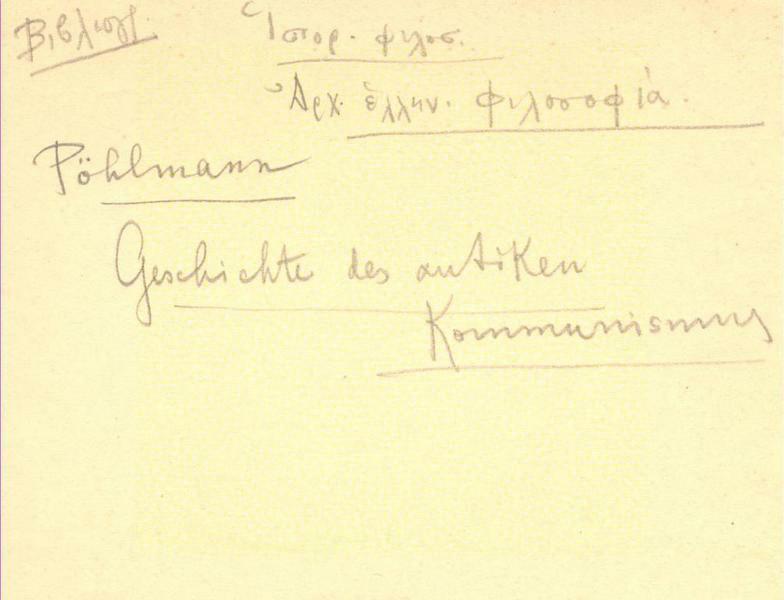 Βιβλιογρ. Ἱστορ. φιλοσ.
Ἀρχ. ἑλλην. φιλοσοφία.
Pöhlmann
Geschichte des antiken
Kommunismus